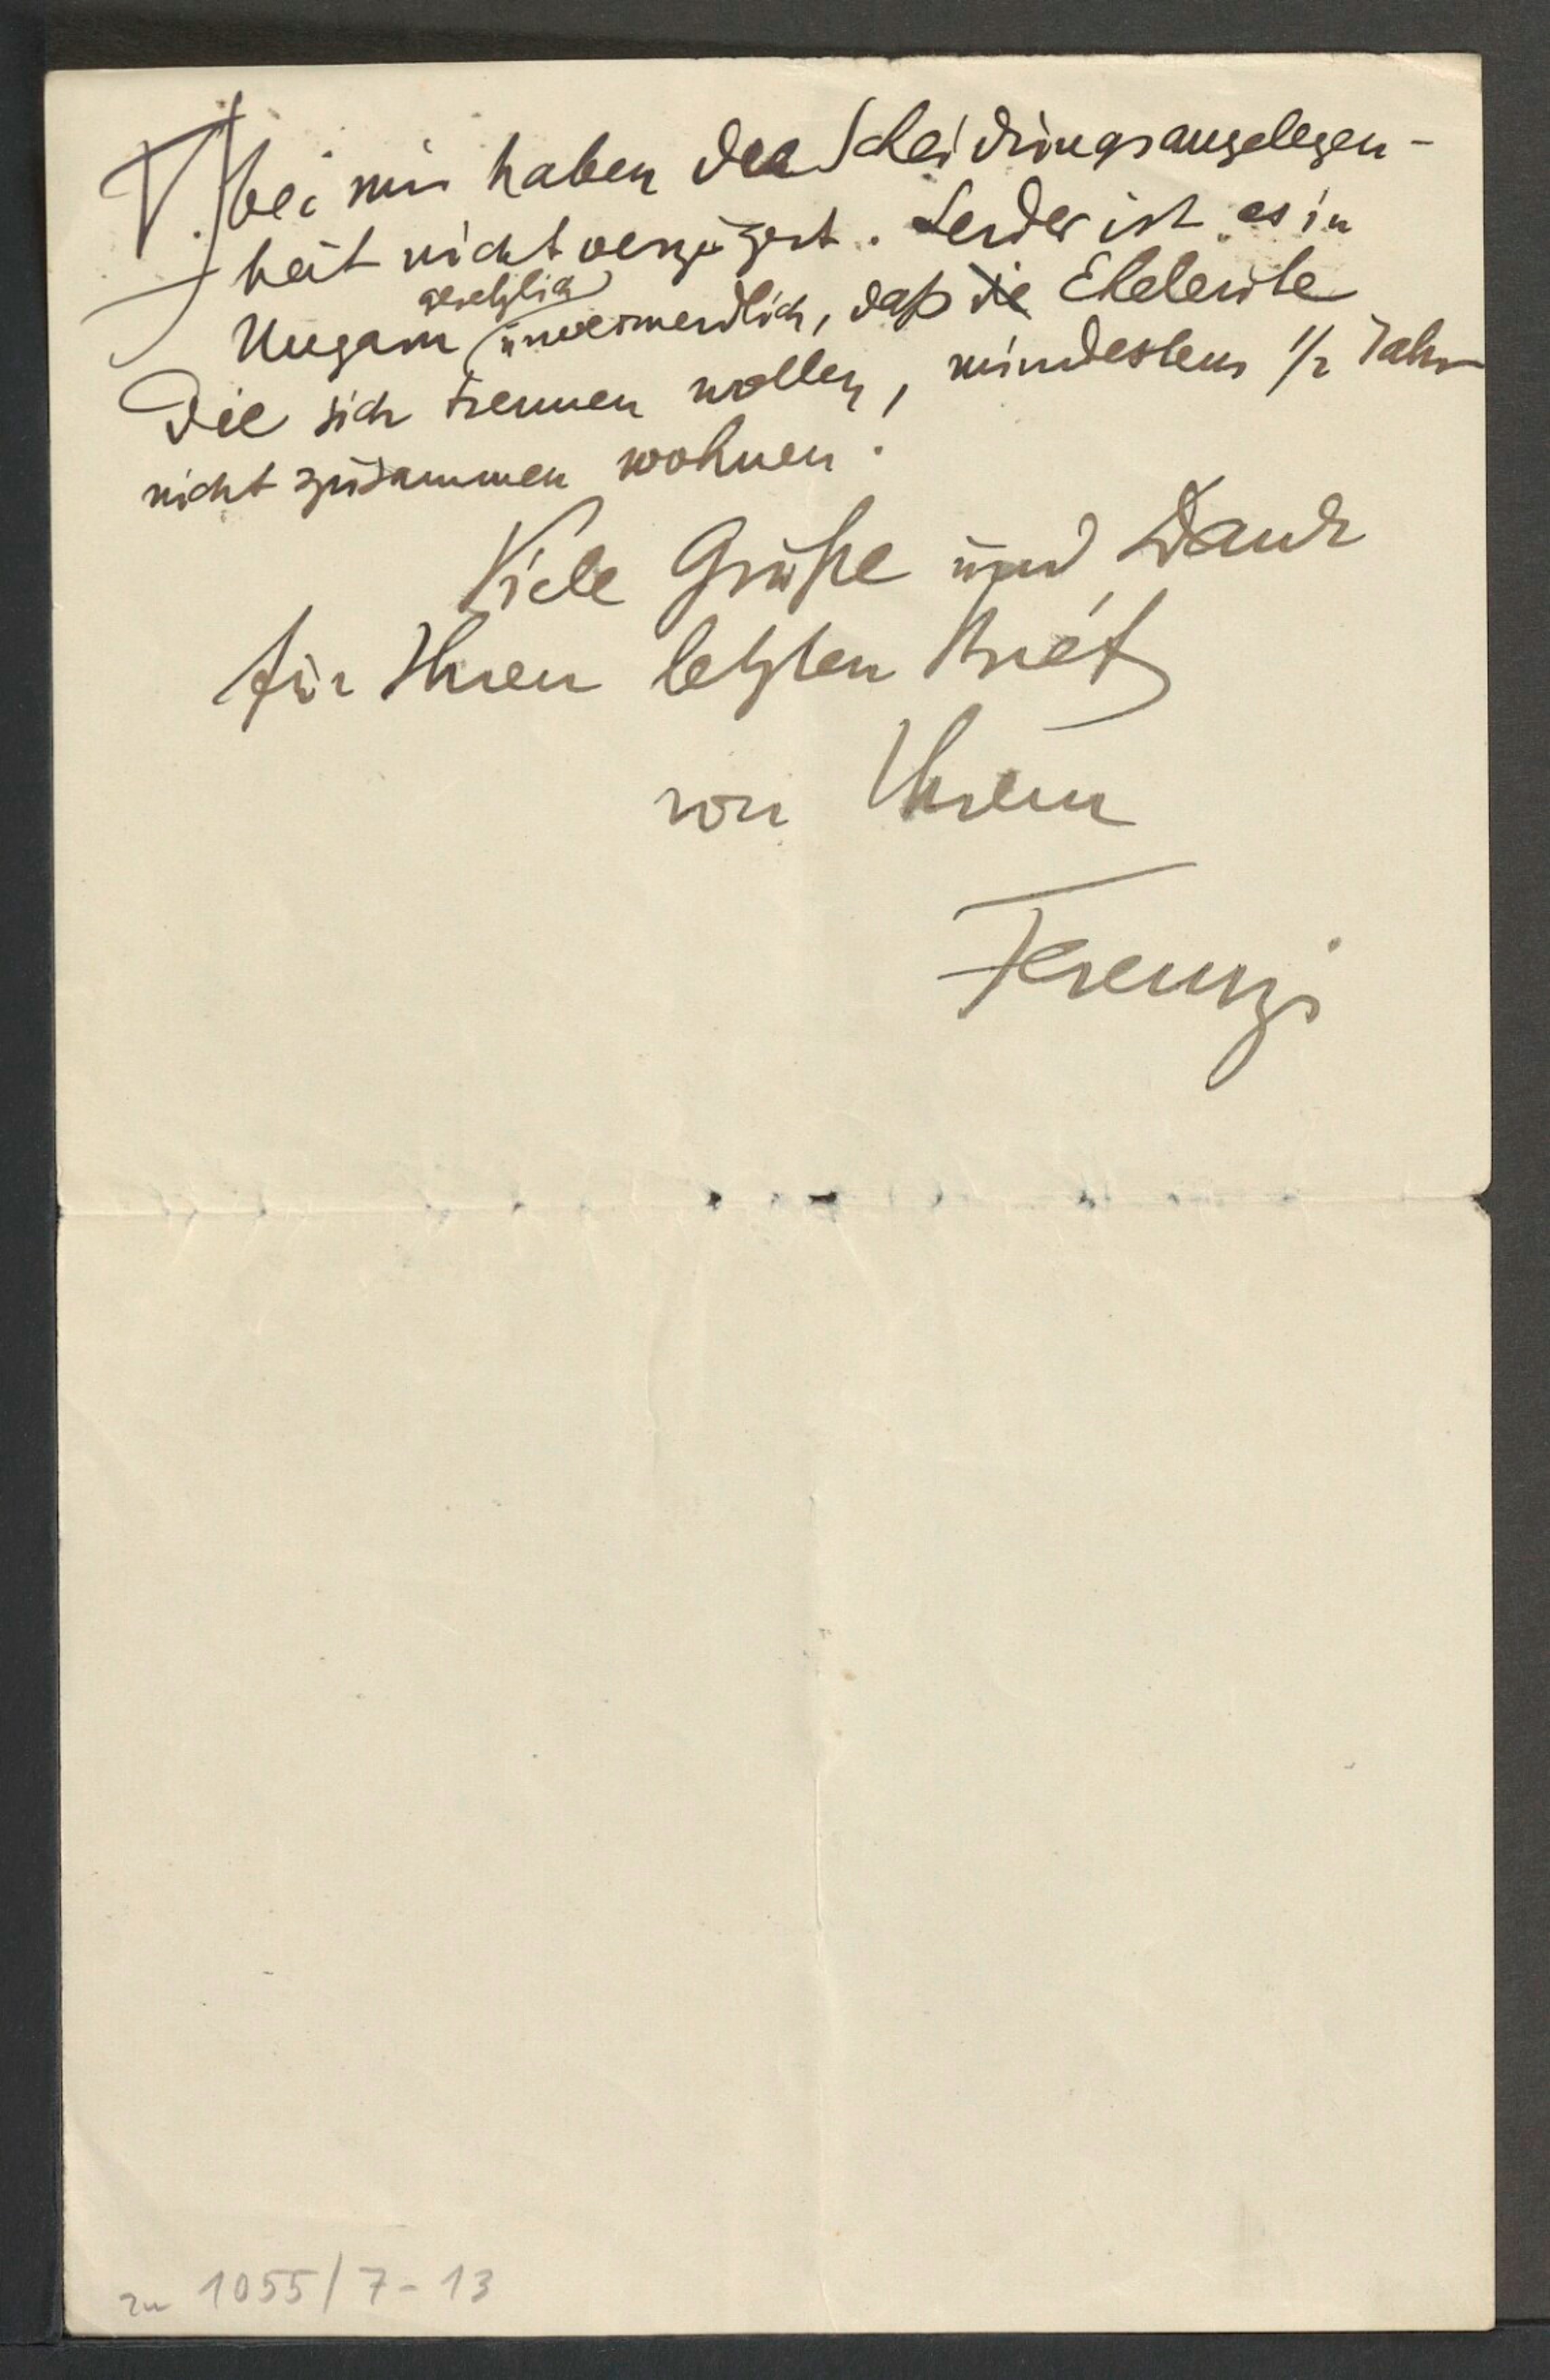 V. bei mir haben die Scheidungsangelegen-
heit nicht verzögert. Leider ist es in
gesetzlich
Ungarn unvermeidlich, daß die Eheleute
die sich trennen wollen, mindestens 1/2 Jahr
nicht zusammen wohnen.
Viele Grüße und Dank
für Ihren letzten Brief
von Ihrem
Ferenczi
zu 1055/7-13